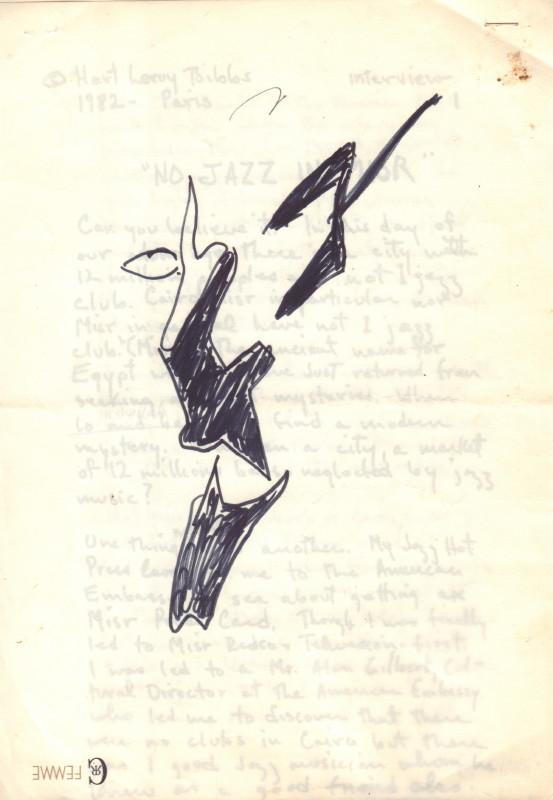 © Hart Leroy Bibbs interview
1982 - Paris 1
"NO JAZZ IN MISR"
Can you believe it? In this day of
our there city with
12 million peoples and not 1 jazz
club. Cairo Misr in particular nor
Misr in general have not 1 jazz
club. (Misr the ancient name for
Egypt have just returned from
seeking mysteries. When
lo and find a modern
mystery. a city, a market
of 12 million neglected by jazz
music?
One thing another. My Jazz Hot
Press me to the American
Embassy see about getting a
Misr Press Card. Though I was finally
led to Misr first
I was led to a Mr. Alan Gilbert Cul-
tural Director at the American Embassy
who led me to discover that there
were no clubs in Cairo but there
was 1 good Jazz musician whom he
knew as a good friend also
FEMME